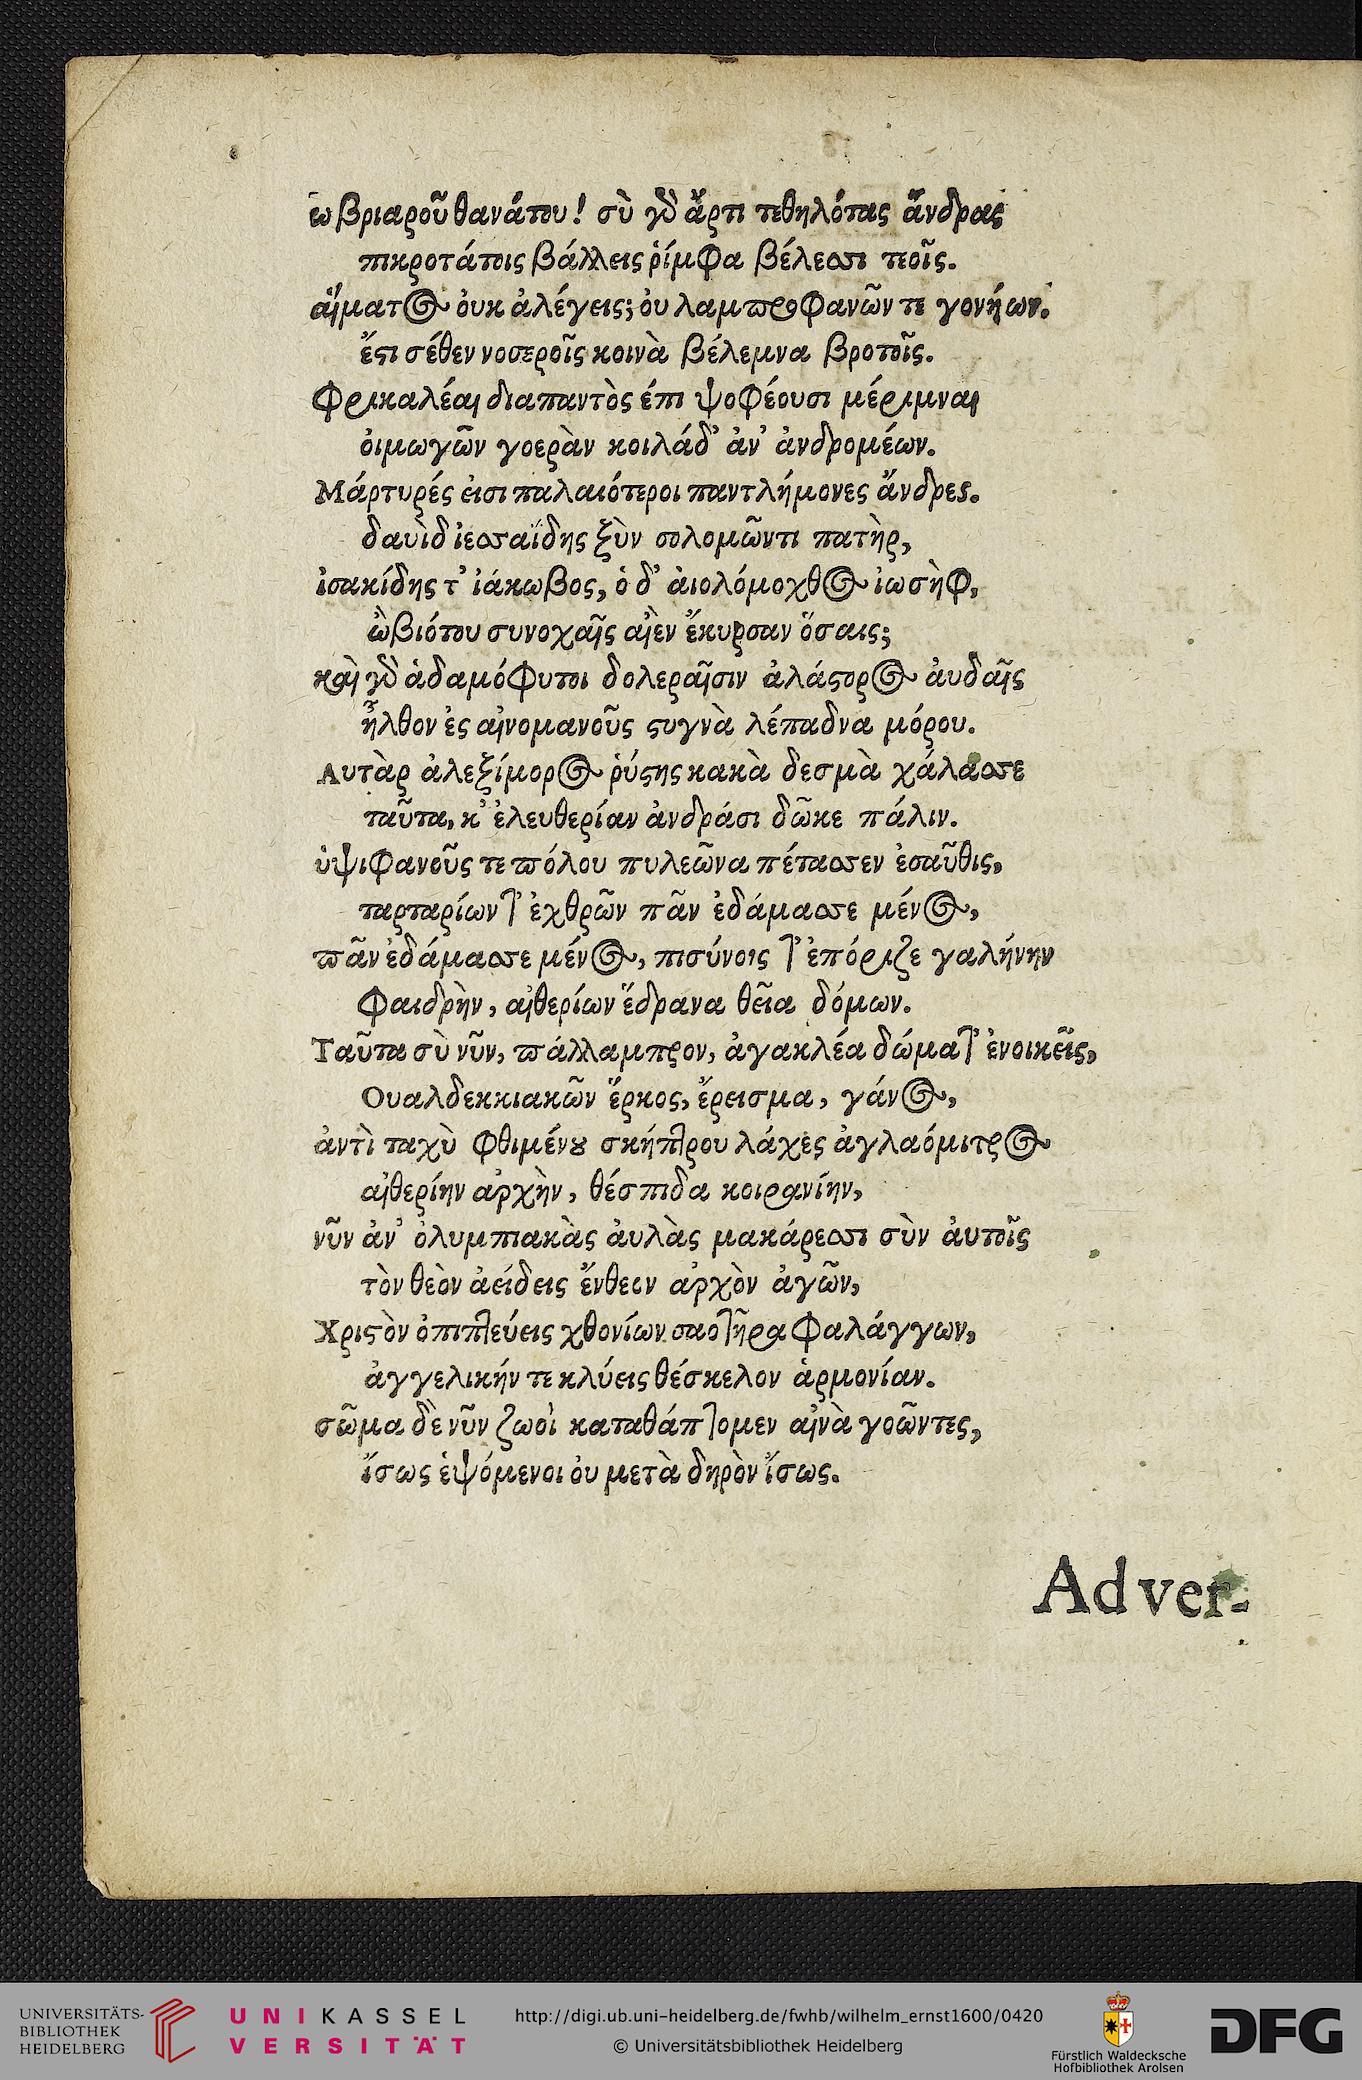 ὦ βριαροῦ θανάτου! σὺ γὸ ἄρτι τεθηλότας ἄνδρας
πικροτάτοις βάλλεις ῥίμφα βέλεσσι τεοῖς.
αἵματος ὀυκ ἀλέγεις; ὀυ λαμπροφανῶν τε γονήων.
ἔστι σέθεν νοσεροῖς κοινὰ βέλεμνα βροτοῖς.
Φρικαλέαι διαπαντὸς ἐπι ψοφέουσι μέριμναι
ὀιμωγῶν γοερὰν κοιλάδ' ἀν' ἀνδρομέων.
Μάρτυρές ἐισι παλαιότεροι παντλήμονες ἄνδρες.
δαυὶδ ἰεσσαΐδης ξὺν σολομῶντι πατὴρ,
ἰσακίδης τ' ἰάκωβος, ὁ δ' ἀιολόμοχθος ἰωσὴφ,
ὢ βιότου συνοχαῖς αἰὲν ἔκυρσαν ὅσαις;
καὶ γὸ ἀδαμόφυτοι δολεραῖσιν ἀλάστορος ἀυδαῖς
ἦλθον ἐς αἰνομανοῦς στυγνὰ λέπαδνα μόρου.
Αυτὰρ ἀλεξίμορος ῥύστης κακὰ δεσμὰ χάλασσε
ταῦτα, κ' ἐλευθερίαν ἀνδράσι δῶκε πάλιν.
ὑψιφανοῦς τε πόλου πυλεῶνα πέτασσεν ἐσαῦθις,
ταρταρίων τ' ἐχθρῶν πᾶν ἐδάμασσε μένος,
πᾶν ἐδάμασσε μένος, πισύνοις τ' ἐπόριζε γαλήνην
Φαιδρὴν, αἰθερίων ἕδρανα θεῖα δόμων.
Ταῦτα σὺ νῦν, πάλλαμπρον, ἀγακλέα δώματ' ἐνοικεῖς,
Ουαλδεκκιακῶν ἕρκος, ἔρεισμα, γάνος,
ἀντὶ ταχὺ φθιμένȣ σκήπτρου λάχες ἀγλαόμιτρος
αἰθερίην ἀρχὴν, θέσπιδα κοιρανίην,
νῦν ἀν' ὀλυμπιακὰς ἀυλὰς μακάρεσσι σὺν ἀυτοῖς
τὸν θεὸν ἀείδεις ἔνθεον ἀρχὸν ἀγῶν,
Χριστὸν ὀπιπτεύεις χθονίων σαοτῆρα φαλάγγων,
ἀγγελικήν τε κλύεις θέσκελον ἁρμονίαν.
σῶμα δὲ νῦν ζωοὶ καταθάπτομεν αἰνὰ γοῶντες,
ἴσως ἑψόμενοι ὀυ μετὰ δηρὸν ἴσως.
Adver-
UNIVERSITÄTS-
BIBLIOTHEK
HEIDELBERG
UNIKASSEL
VERSITÄT
http://digi.ub.uni-heidelberg.de/fwhb/wilhelm_ernst1600/0420
© Universitätsbibliothek Heidelberg
Fürstlich Waldecksche
Hofbibliothek Arolsen
DFG